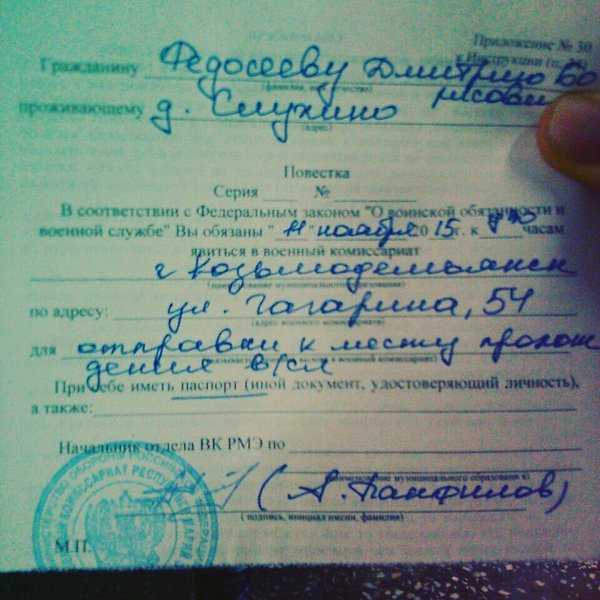 Приложение № 30
к Инструкции (п.
Гражданину Федосееву Дмитрию Бо
рисови
(фамилия, отчество)
проживающему д. Сиухино
(адрес)
Повестка
Серия ____ № ____
В соответствии с Федеральным законом "О воинской обязанности и
военной службе" Вы обязаны " 11 " ноября 2015г. к часам
явиться в военный комиссариат
г Козьмодемьянск
(наименование муниципального образования)
по адресу: ул. Гагарина, 54
(адрес военного комиссариата)
для отправки к месту прохож
дения в/сл
При себе иметь паспорт (иной документ, удостоверяющий личность),
а также:
Начальник отдела ВК РМЭ по
(наименование муниципального образования)
(А. Панфилов)
( подпись, инициал имени, фамилия)
М.П.